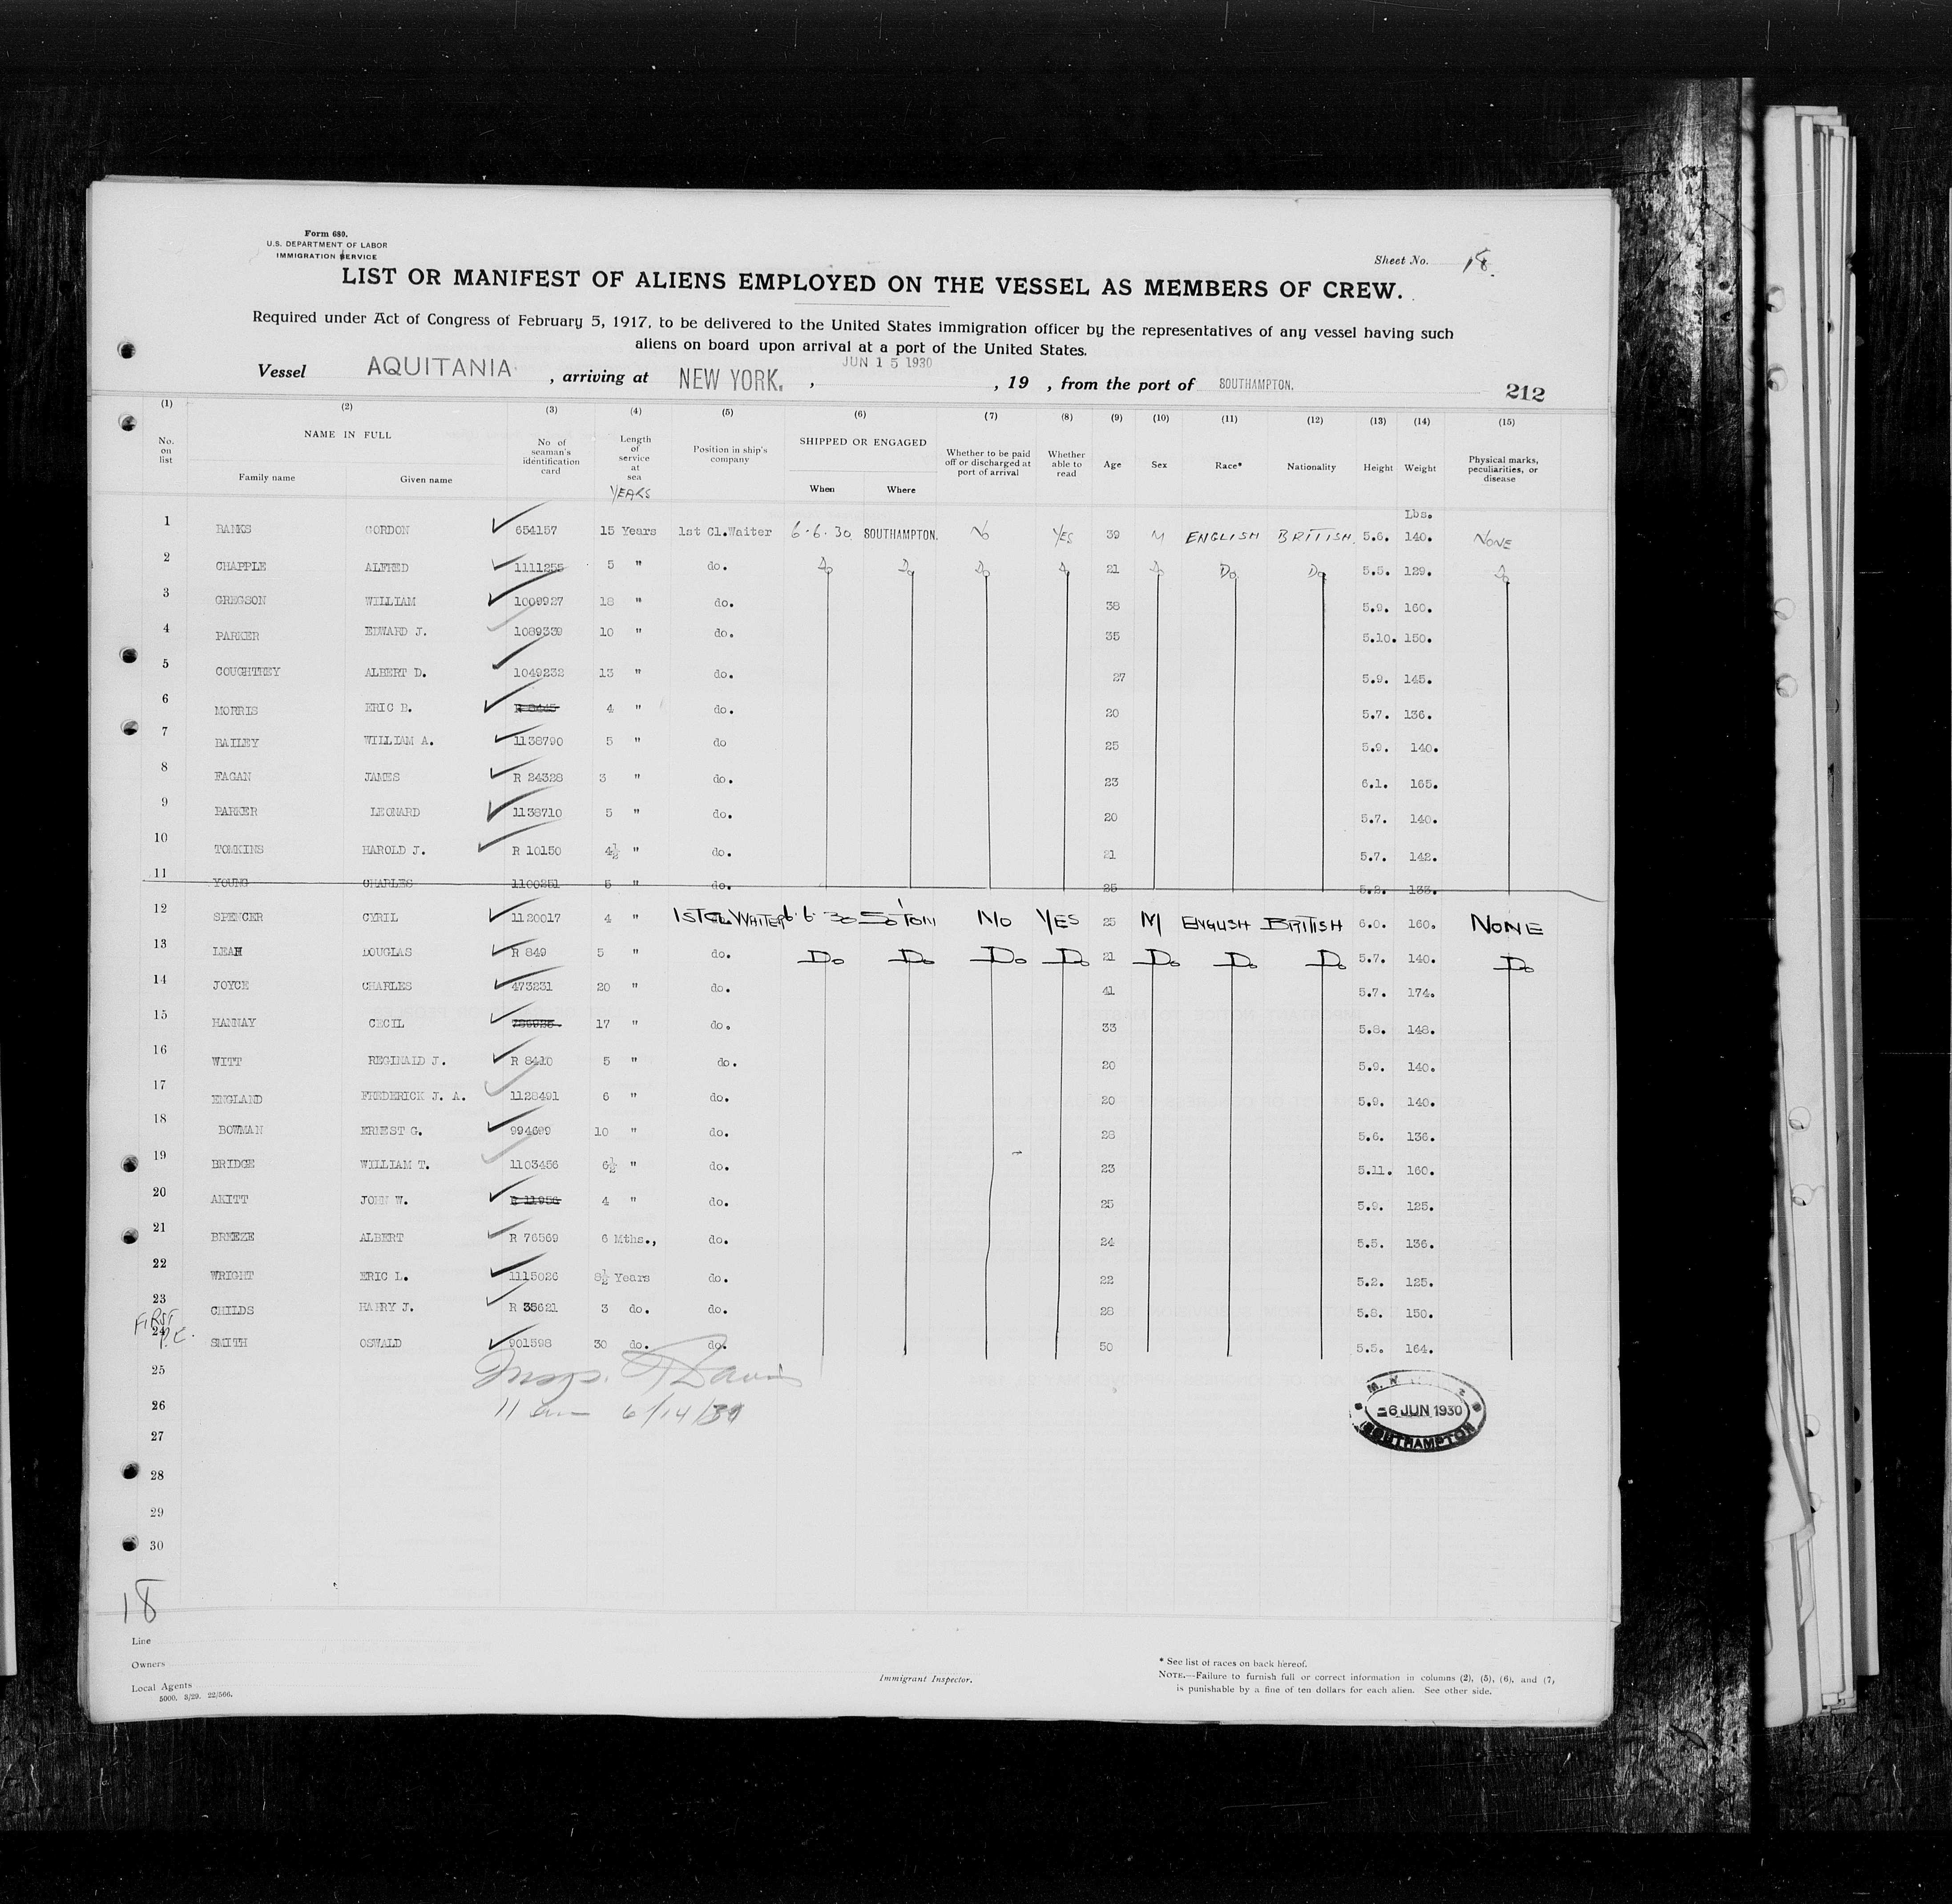 Form 680.
U.S. DEPARTMENT OF LABOR
IMMIGRATION SERVICE
Sheet No. 18.
LIST OR MANIFEST OF ALIENS EMPLOYED ON THE VESSEL AS MEMBERS OF CREW.
Required under Act of Congress of February 5, 1917, to be delivered to the United States immigration officer by the representatives of any vessel having such
aliens on board upon arrival at a port of the United States.
Vessel AQUITANIA , arriving at NEW YORK. , JUN 15 1930 , 19 , from the port of SOUTHAMPTON.
212
(1) (2) (3) (4) (5) (6) (7) (8) (9) (10) (11) (12) (13) (14) (15)
No. on list NAME IN FULL Family name Given name No of seaman's identification card Length of service at sea YEARS Position in ship's company SHIPPED OR ENGAGED When Where Whether to be paid off or discharged at port of arrival Whether able to read Age Sex Race* Nationality Height Weight Physical marks, peculiarities, or disease
Lbs.
1 BANKS GORDON 654157 15 Years 1st Cl.Waiter 6.6.30 SOUTHAMPTON. No YES 39 M ENGLISH BRITISH. 5.6. 140. NONE
2 CHAPPLE ALFRED 1111255 5 " do. Do Do Do Do 21 Do Do Do 5.5. 129. Do
3 GREGSON WILLIAM 1009927 18 " do. 38 5.9. 160.
4 PARKER EDWARD J. 1089339 10 " do. 35 5.10. 150.
5 COUGHTREY ALBERT D. 1049232 13 " do. 27 5.9. 145.
6 MORRIS ERIC B. R 8445 4 " do. 20 5.7. 136.
7 BAILEY WILLIAM A. 1138790 5 " do 25 5.9. 140.
8 FAGAN JAMES R 24328 3 " do. 23 6.1. 165.
9 PARKER LEONARD 1138710 5 " do. 20 5.7. 140.
10 TOMKINS HAROLD J. R 10150 4½ " do. 21 5.7. 142.
11 YOUNG CHARLES 1100251 5 " do. 25 5.2. 133.
12 SPENCER CYRIL 1120017 4 " 1ST CL WAITER 6.6.30 SO'TON NO YES 25 M ENGLISH BRITISH 6.0. 160. NONE
13 LEAH DOUGLAS R 849 5 " do. Do Do Do Do 21 Do Do Do 5.7. 140. Do
14 JOYCE CHARLES 473231 20 " do. 41 5.7. 174.
15 HANNAY CECIL 17 " do. 33 5.8. 148.
16 WITT REGINALD J. R 8410 5 " do. 20 5.9. 140.
17 ENGLAND FREDERICK J. A. 1128491 6 " do. 20 5.9. 140.
18 BOWMAN ERNEST G. 994699 10 " do. 28 5.6. 136.
19 BRIDGE WILLIAM T. 1103456 6½ " do. 23 5.11. 160.
20 AKITT JOHN W. R 11956 4 " do. 25 5.9. 125.
21 BREEZE ALBERT R 76569 6 Mths., do. 24 5.5. 136.
22 WRIGHT ERIC L. 1115026 8½ Years do. 22 5.2. 125.
23 CHILDS HARRY J. R 35621 3 do. do. 28 5.8. 150.
FIRST
24 SMITH OSWALD 901598 30 do. do. 50 5.5. 164.
25
Davis
26
11 am 6/14/30
27
28
29
30
6 JUN 1930
SOUTHAMPTON
18
Line
Owners
Local Agents
5000. 3/29. 22/566.
Immigrant Inspector.
* See list of races on back hereof.
NOTE.—Failure to furnish full or correct information in columns (2), (5), (6), and (7,
is punishable by a fine of ten dollars for each alien. See other side.